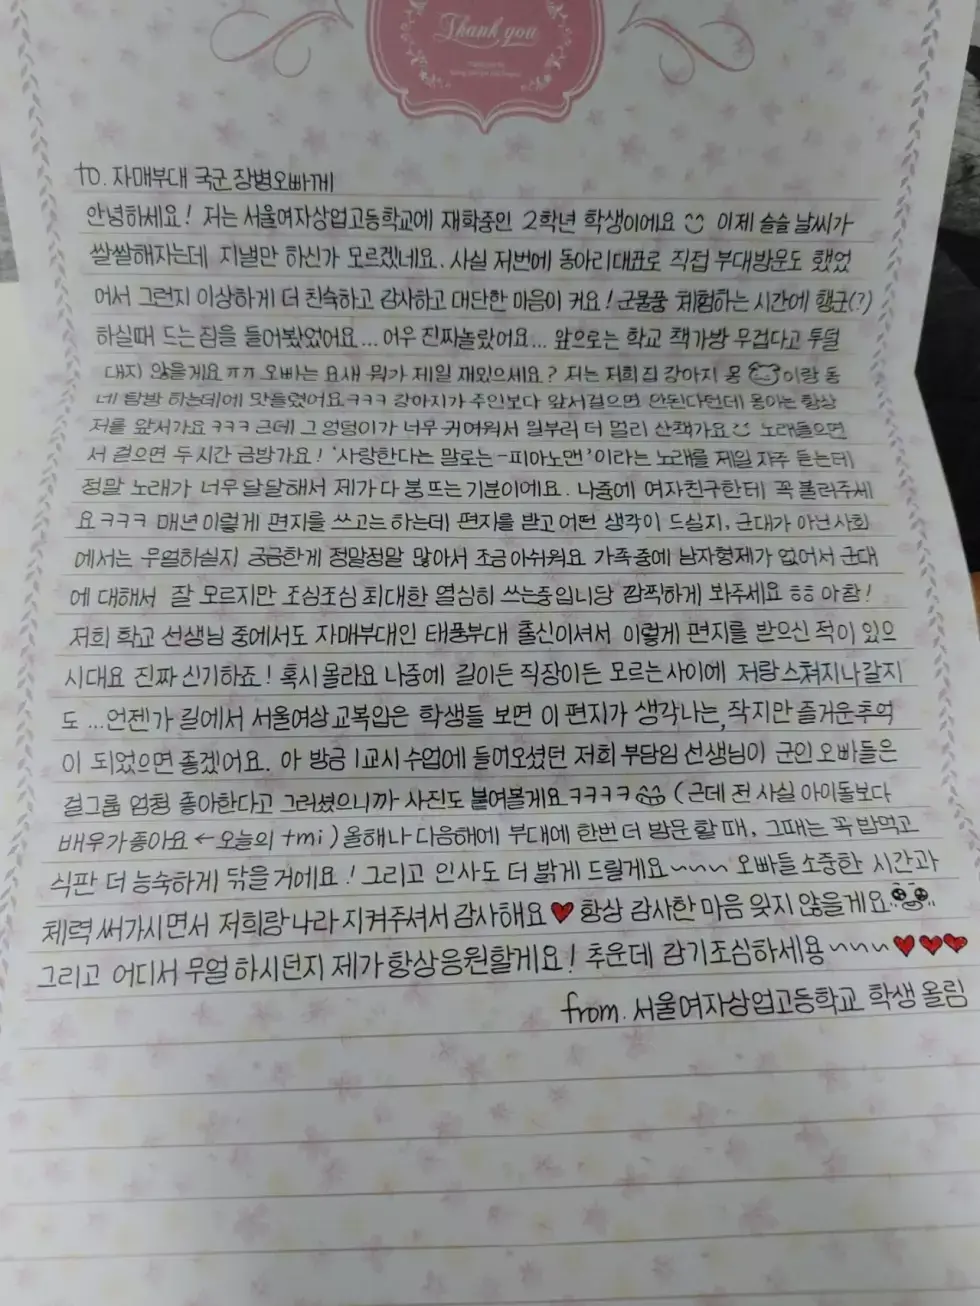 Thank you
to. 자매부대 국군 장병오빠께
안녕하세요! 저는 서울여자상업고등학교에 재학중인 2학년 학생이에요 이제 슬슬 날씨가
쌀쌀해지는데 지낼만 하신가 모르겠네요. 사실 저번에 동아리대표로 직접 부대방문도 했었
어서 그런지 이상하게 더 친숙하고 감사하고 대단한 마음이 커요! 군물품 체험하는 시간에 행군(?)
하실때 드는 짐을 들어봤었어요... 어우 진짜놀랐어요... 앞으로는 학교 책가방 무겁다고 투덜
대지 않을게요ㅠㅠ 오빠는 요새 뭐가 제일 재밌으세요? 저는 저희집 강아지 몽이랑 동
네 탐방 하는데에 맛들렸어요ㅋㅋㅋ 강아지가 주인보다 앞서걸으면 안된다던데 몽이는 항상
저를 앞서가요ㅋㅋㅋ 근데 그 엉덩이가 너무 귀여워서 일부러 더 멀리 산책가요 노래들으면
서 걸으면 두시간 금방가요! '사랑한다는 말로는-피아노맨'이라는 노래를 제일 자주 듣는데
정말 노래가 너무 달달해서 제가 다 붕 뜨는 기분이에요. 나중에 여자친구한테 꼭 불러주세
요ㅋㅋㅋ 매년 이렇게 편지를 쓰고는 하는데 편지를 받고 어떤 생각이 드실지, 군대가 아닌 사회
에서는 무얼하실지 궁금한게 정말정말 많아서 조금 아쉬워요 가족 중에 남자형제가 없어서 군대
에 대해서 잘 모르지만 조심조심 최대한 열심히 쓰는중입니당 깜찍하게 봐주세요 ㅎㅎ 아참!
저희 학교 선생님 중에서도 자매부대인 태풍부대 출신이셔서 이렇게 편지를 받으신 적이 있으
시대요 진짜 신기하죠! 혹시 몰라요 나중에 길이든 직장이든 모르는 사이에 저랑 스쳐지나갈지
도 ...언젠가 길에서 서울여상 교복입은 학생들 보면 이 편지가 생각나는, 작지만 즐거운추억
이 되었으면 좋겠어요. 아 방금 1교시 수업에 들어오셨던 저희 부담임 선생님이 군인 오빠들은
걸그룹 엄청 좋아한다고 그러셨으니까 사진도 붙여볼게요ㅋㅋㅋㅋ (근데 전 사실 아이돌보다
배우가 좋아요 ← 오늘의 tmi) 올해나 다음해에 부대에 한번 더 방문 할 때, 그때는 꼭 밥먹고
식판 더 능숙하게 닦을 거에요! 그리고 인사도 더 밝게 드릴게요~~~ 오빠들 소중한 시간과
체력 써가시면서 저희랑 나라 지켜주셔서 감사해요♥ 항상 감사한 마음 잊지 않을게요
그리고 어디서 무얼 하시던지 제가 항상 응원할게요! 추운데 감기조심하세용~~~♥♥♥
from. 서울여자상업고등학교 학생 올림